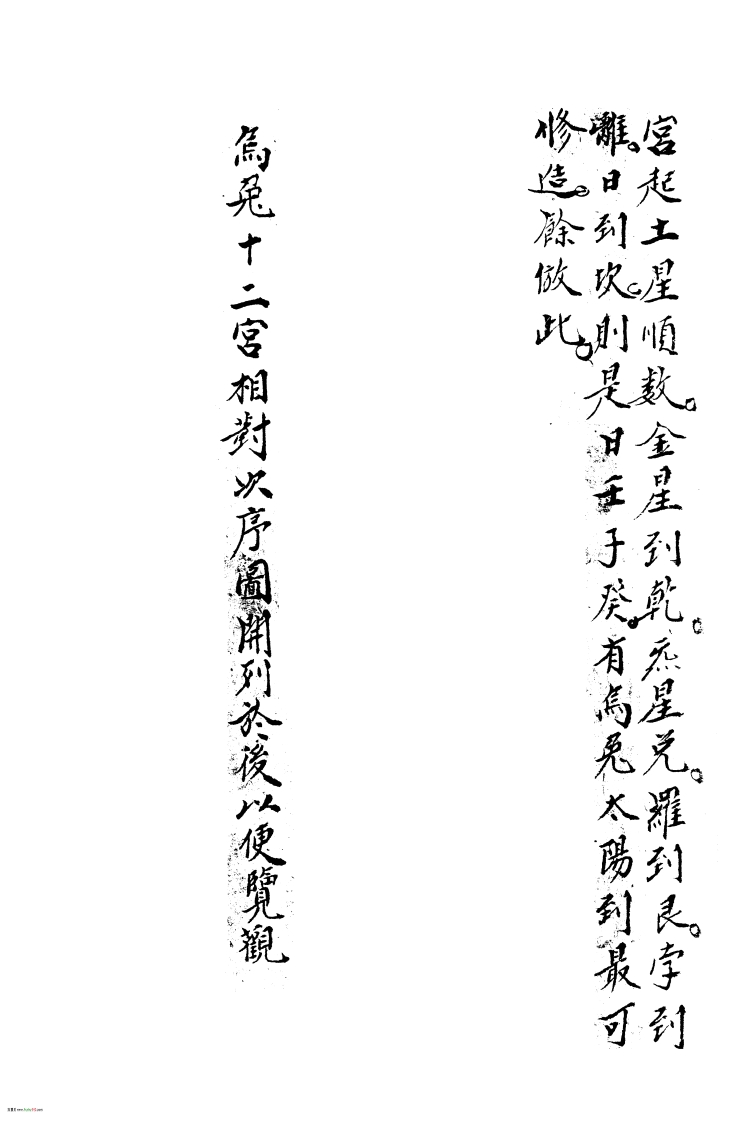 宮起土星順数。金星到乾。炁星兌。羅到艮。孛到
離。日到坎。則是日壬子癸。有烏兔太陽到最可
修造。餘倣此。
烏兔十二宮相對次序圖開列於後以便覽觀